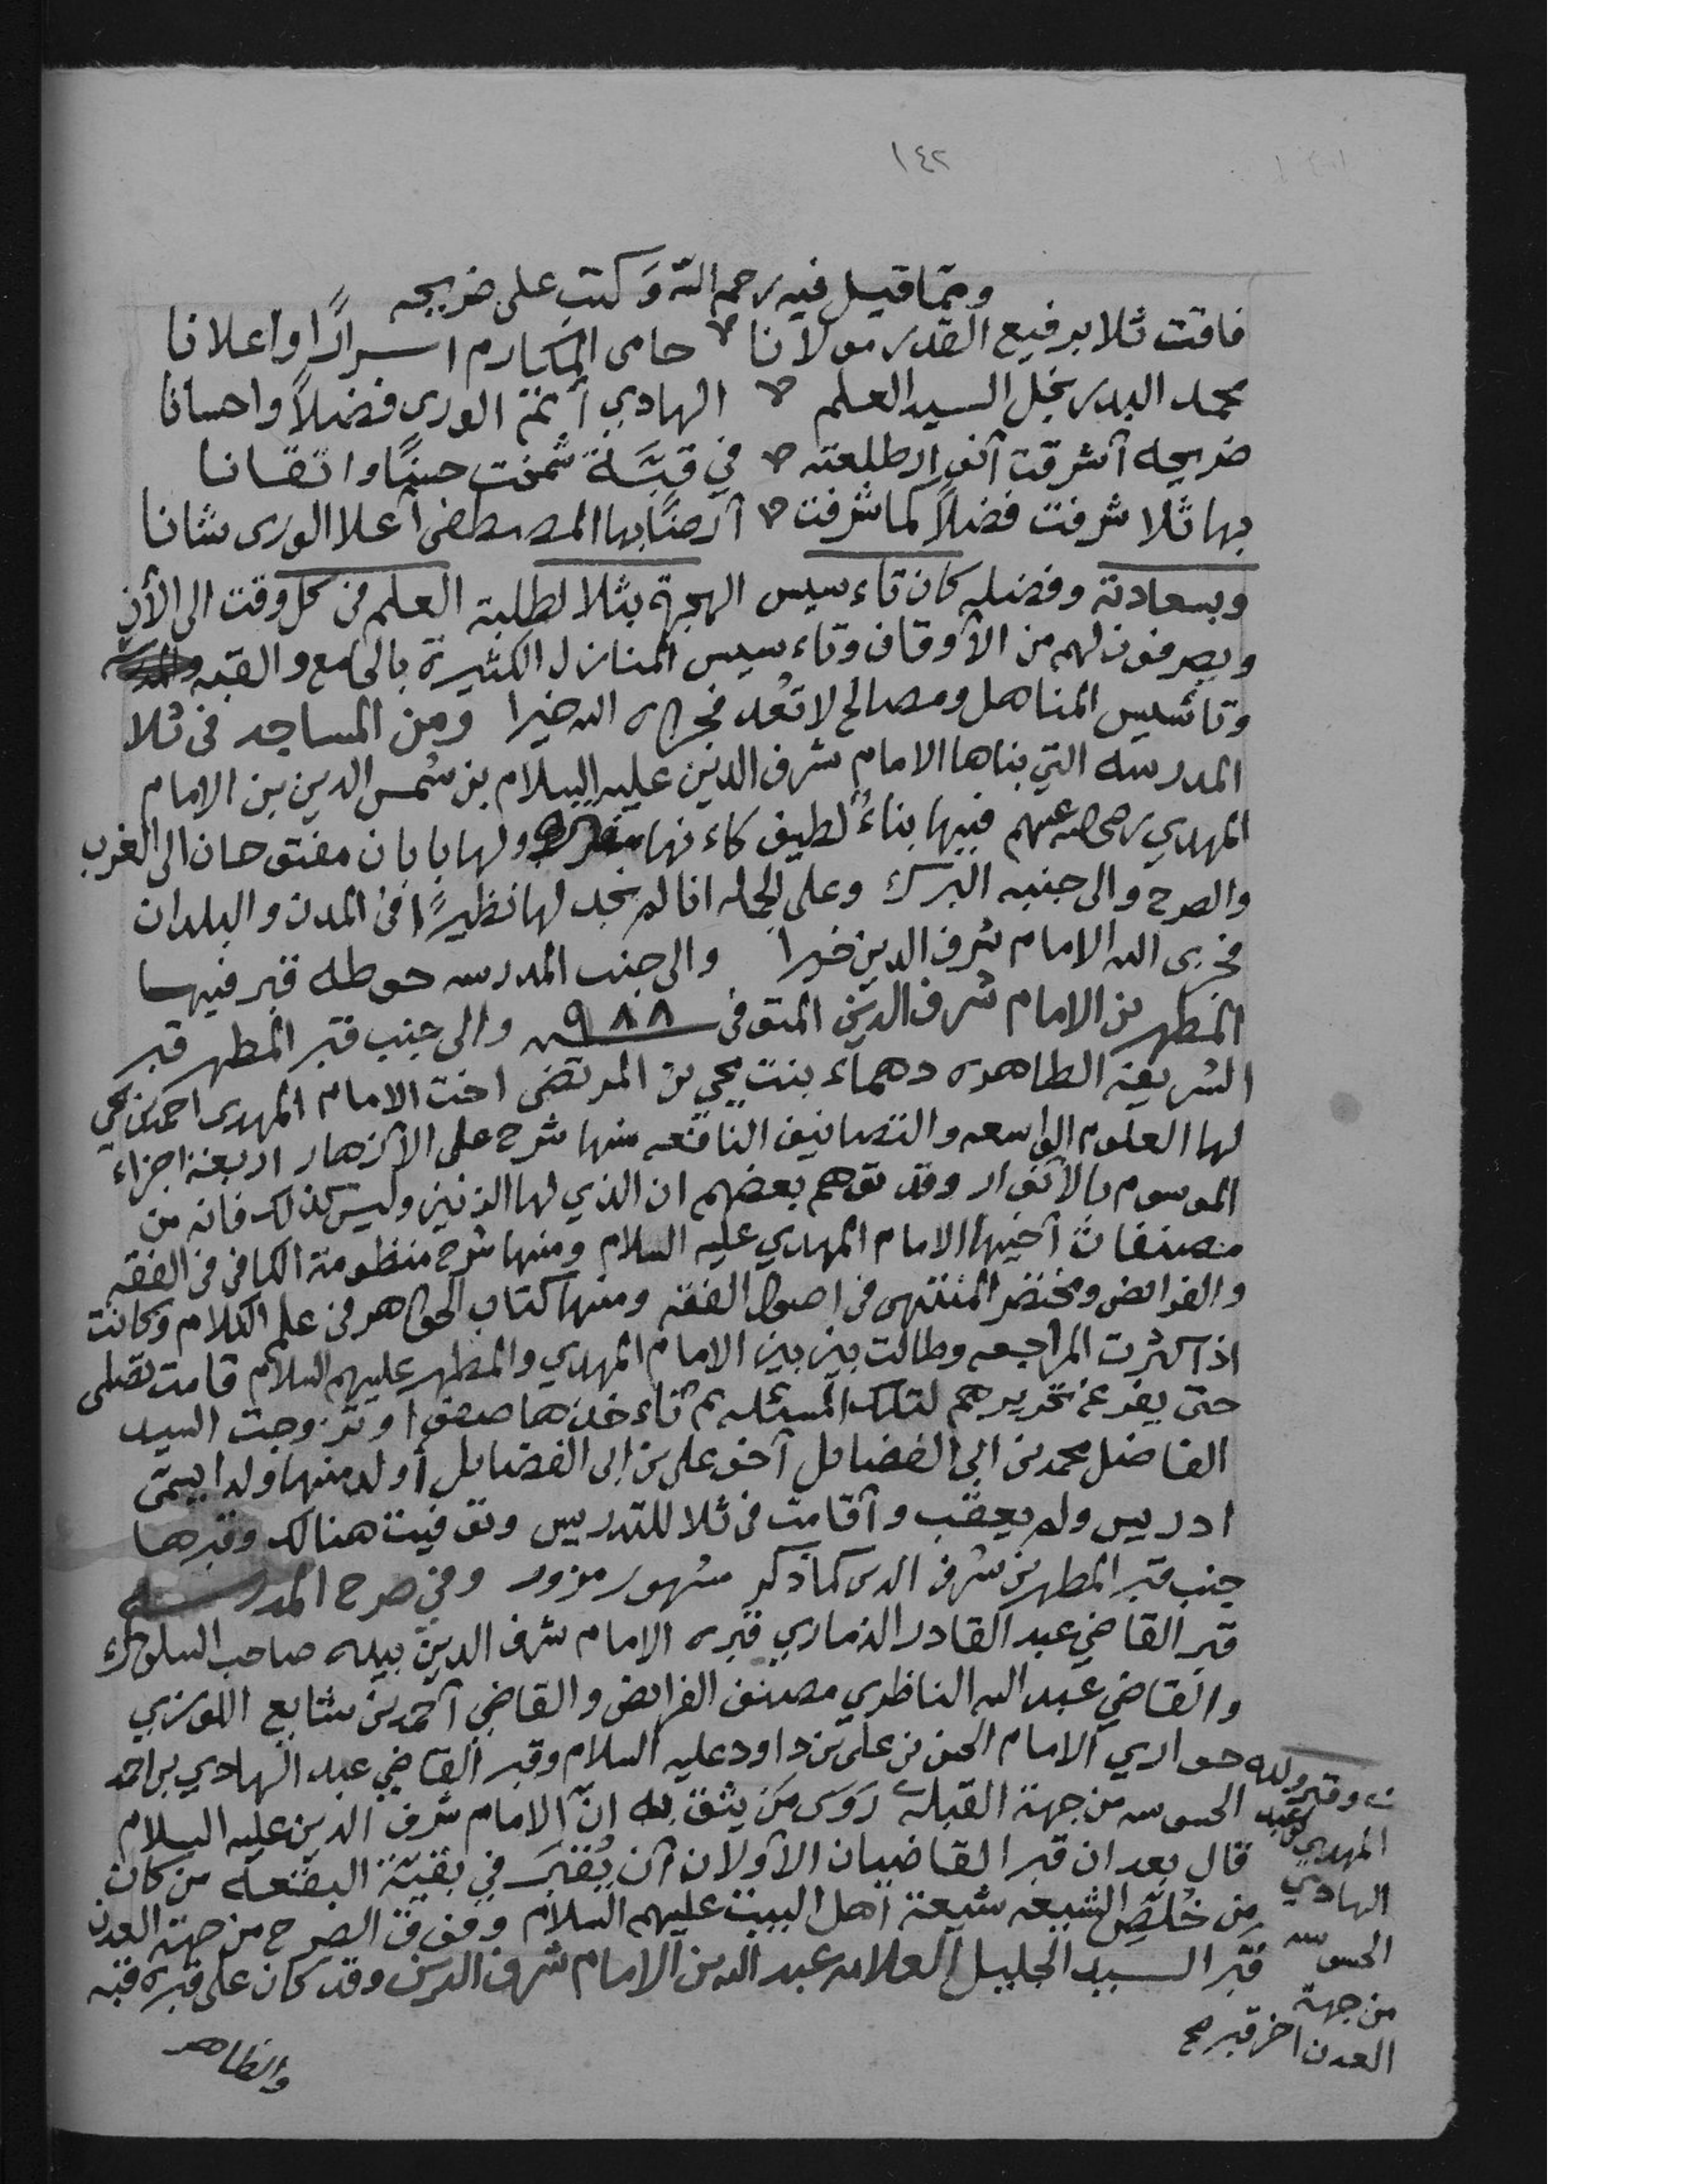 ١٤٢
ومما قيل فيه رحمه الله وَكتب على ضريحه
فاقت ثلا برفيع القدر مولانا حامى المكارم اسرارًا واعلانا
محمد البدر نجل السيد العلم الهادي أئمة الورى فضلاً واحسانا
ضريحه أشرقت أنوار طلعته في قبَّة شمخت حسنًا واتقانا
بها ثلا شرفت فضلاً كما شرفت أرضًا بها المصطفى أعلا الورى شانا
وبسعادته وفضله كان تاءسيس الهجرة بثلا لطلبة العلم من كل وقت الى الأن
ويصرفون لهم من الأوقاف وتاءسيس المنازل الكثيرة بالجامع والقبه
وتأسيس المناهل ومصالح لا تعُد فجزاه الله خيرا ومن المساجد فى ثلا
المدرسه التي بناها الامام شرف الدين عليه السلام بن شمس الدين بن الامام
المهدي رضي الله عنهم فبيها بناءُ لطيف كاءنها ولها بابان مفتوحان الى الغرب
والصرح والى جنبه البرك وعلى الجمله انا لم نجد لها نظيرًا فى المدن والبلدان
فجزى الله الامام شرف الدين خيرا والى جنب المدرسه حوطه قبر فيها
المطهر بن الامام شرف الدين المتوفى ٩٨٨ والى جنب قبر المطهر قبر
الشريفه الطاهره دهماء بنت يحي بن المرتضى اخت الامام المهدى احمد بن يحي
لها العلوم الواسعه والتصانيف النافعه منها شرح على الأزهار اربعة اجزاء
الموسوم بالأنوار وقد توهم بعضهم ان الذي لها الزنين وليس كذلك فانه من
مصنفات أخيها الامام المهدي عليه السلام ومنها شرح منظومة الكافى فى الفقه
والفرائض ومختصر المنتهى فى اصول الفقه ومنها كتاب الجواهر فى علم الكلام وكانت
اذا كثرت المراجعه وطالت بين بين الامام المهدي والمطهر عليهم السلام قامت تصلى
حتى يفرغ تحريرهم لتلك المسئله ثم تاءخذها صفوا وتزوجت السيد
الفاضل محمد بن ابي الفضايل أخو على بن ابى الفضايل أولد منها ولدا يسمّى
ادريس ولم يعقب وأقامت فى ثلا للتدريس وتوفيت هنالك وقبرها
جنب قبر المطهر بن شرف الدين كما ذكر مشهور مزور وفي صرح المدرسه
قبر القاضي عبد القادر الذماري قبره الامام شرف الدين بيده صاحب السلوك
والقاضي عبد الله الناظري مصنف الفرائض والقاضي أحمد بن شايع اللوزي
حواري الامام الحسن بن على بن داود عليه السلام وقبر القاضي عبد الهادي بن احمد
الحسوسه من جهة القبله رَوَى مَن يثق به انّ الامام شرف الدين عليه السلام
قال بعد ان قبر القاضيان الأولان أن يُقبَر في بقيّة البقعه من كان
من خُلّص الشيعه شيعة أهل البيت عليهم السلام وفوق الصرح من جهة العدن
قبر السيد الجليل العلامه عبد الله بن الامام شرف الدين وقد كان على قبره قبه
والظاهر
وقبر ولده
المهدي عبد
الهادي
الحسوسه
من جهة
العدن اخر قبر صح